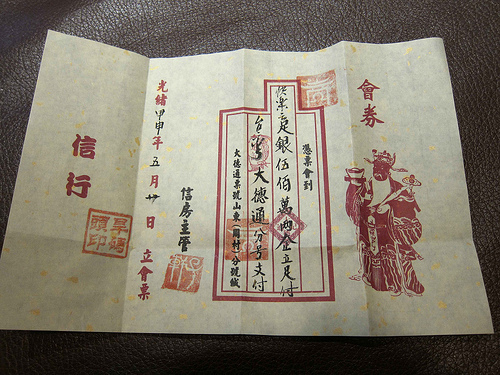 會券
憑票會到
足銀伍佰萬兩金立足付
大德通分号支付
大德通票號山東(周村)分號緘
信房主管
光緒甲申年五月廿日立會票
信行